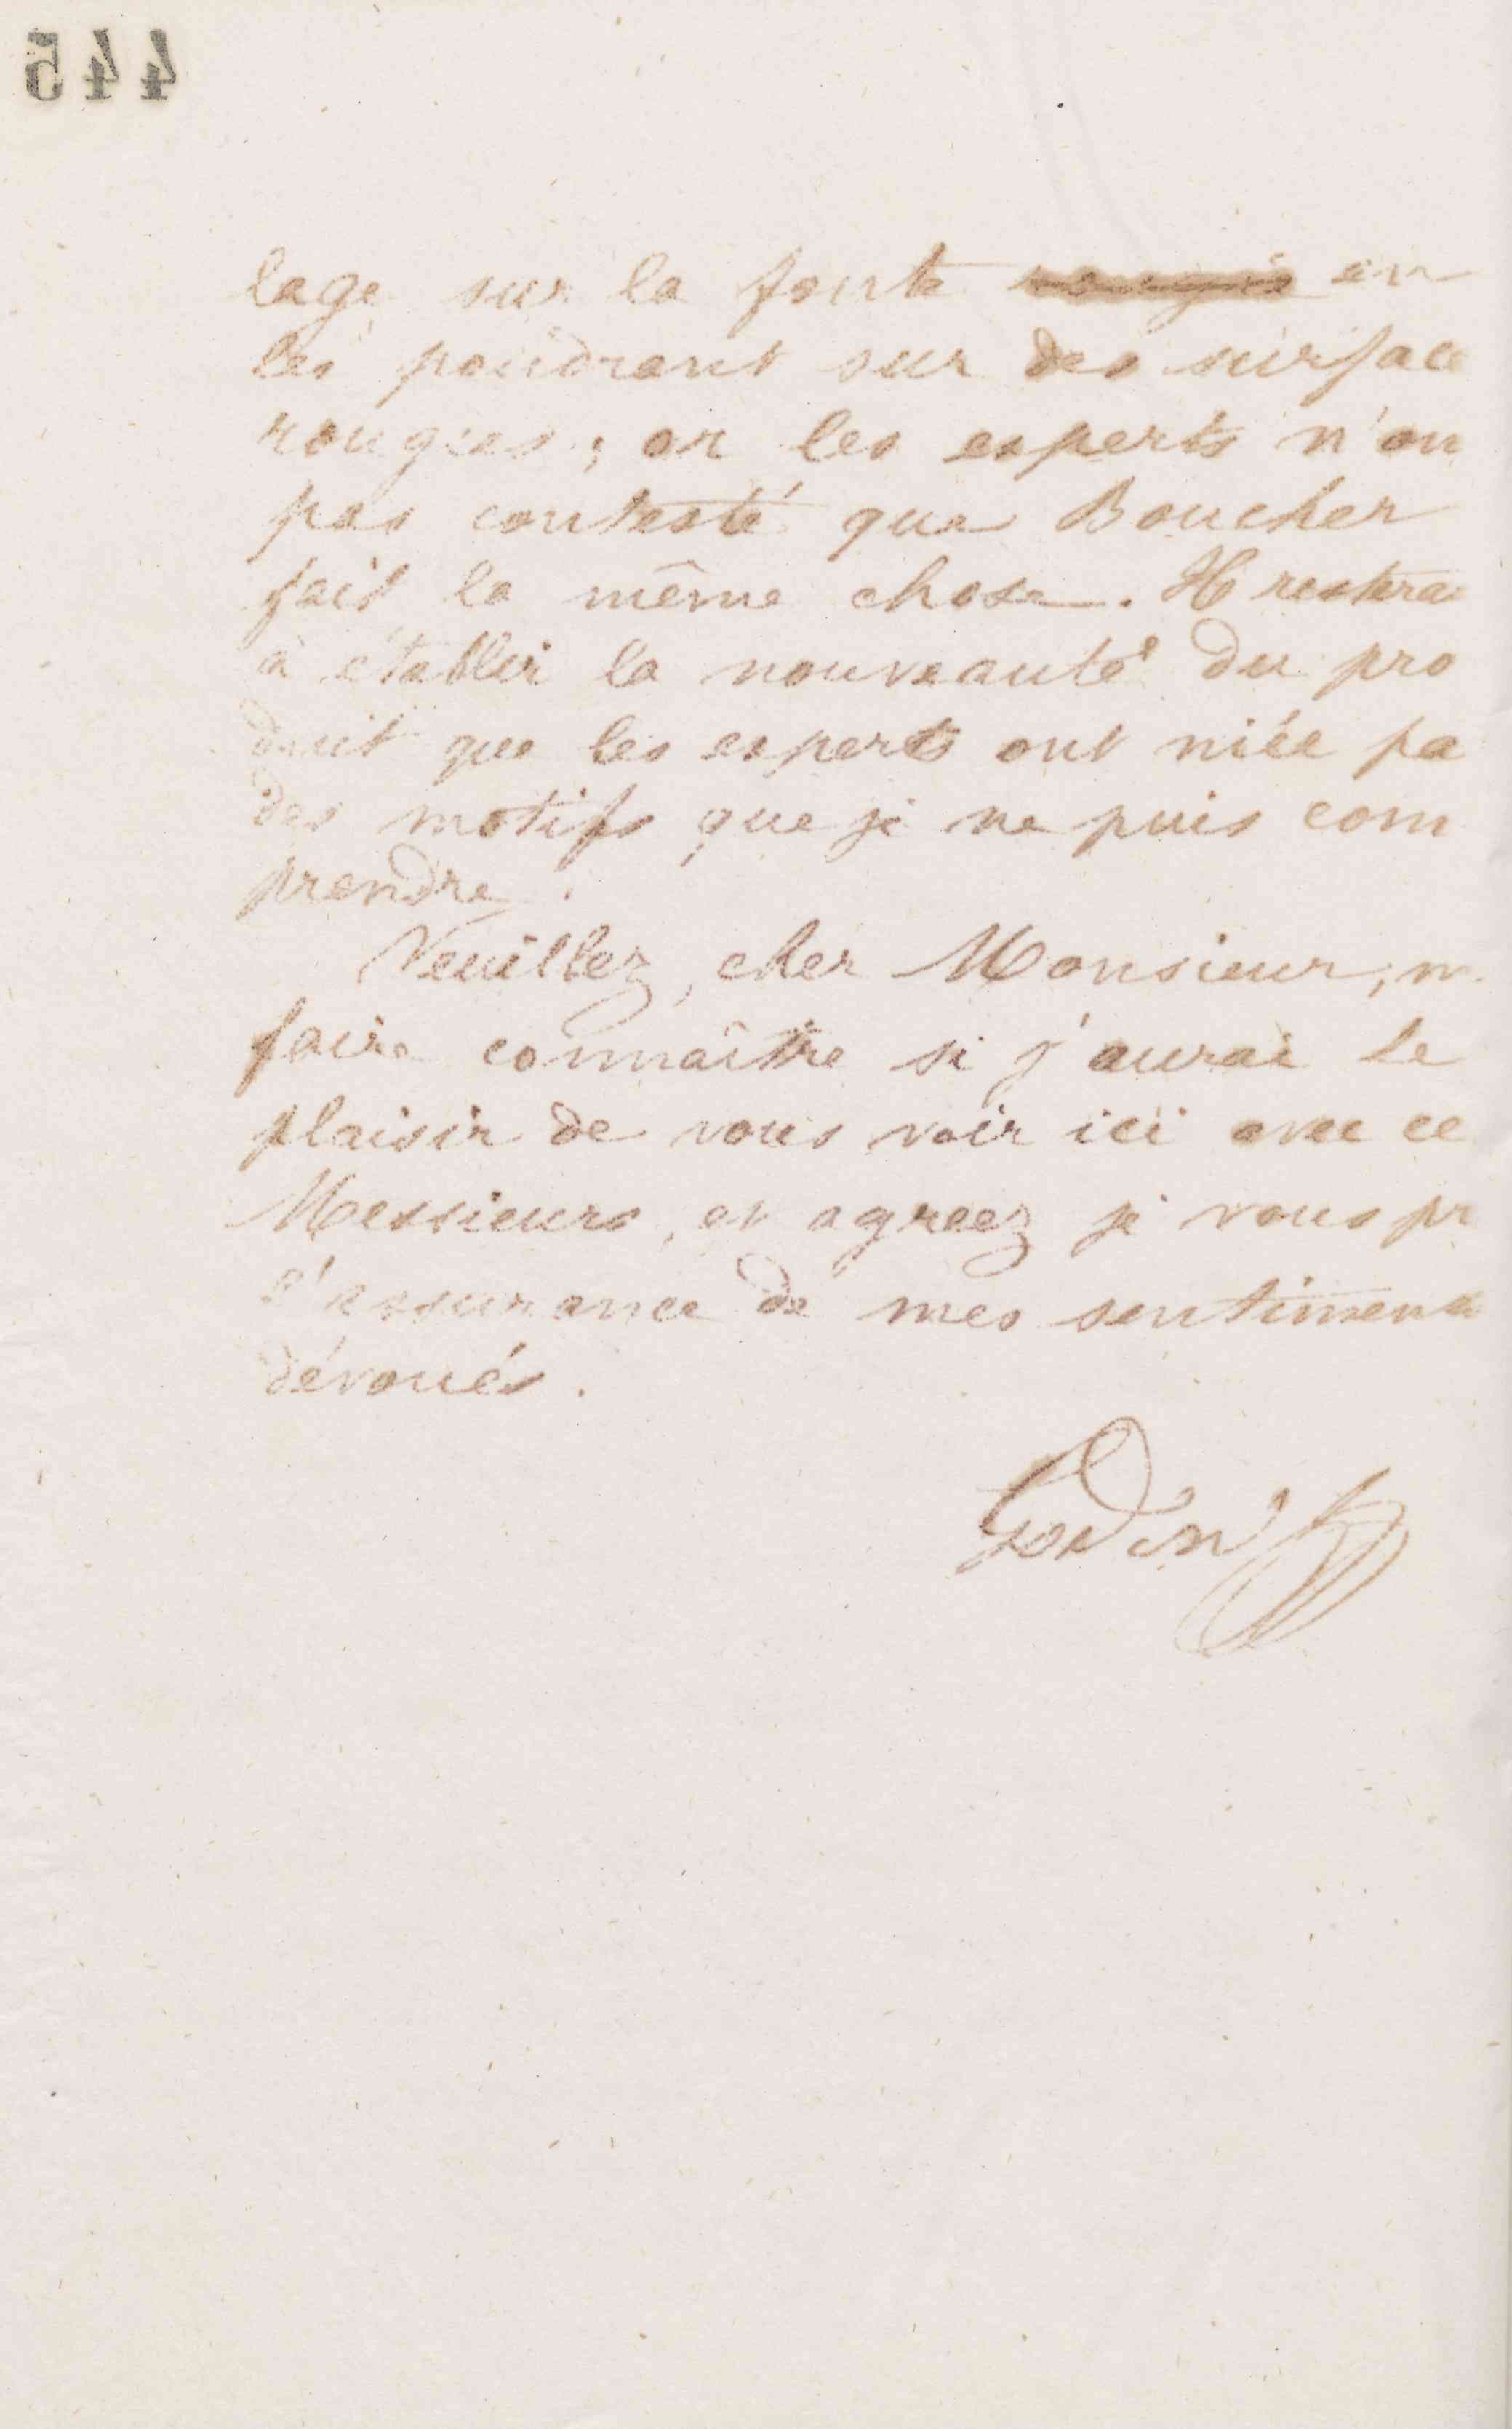 445
lage sur la fonte rougie en
les poudrant sur des surface
rougies; or les experts n'on
pas contesté que Boucher
fait la même chose. Il restera
à établir la nouveauté du pro
duit que les experts ont niée pa
des motifs que je ne puis com
prendre.
Veuillez, cher Monsieur, m
faire connaître si j'aurai le
plaisir de vous voir ici avec ce
Messieurs, et agréez je vous pr
l'assurance de mes sentiments
dévoués.
Godin